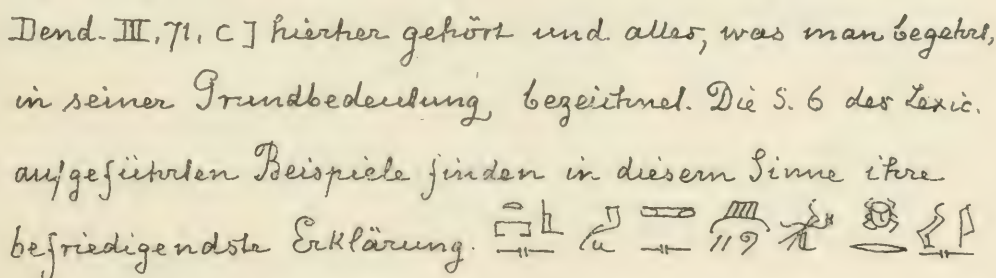 Dend. III, 71, c] hierher gehört und alles, was man begehrt,
in seiner Grundbedeutung, bezeichnet. Die S. 6 des Lexic.
aufgeführten Beispiele finden in diesem Sinne ihre
befriedigendste Erklärung.